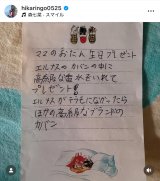 hikaringo0525
森七菜・スマイル
ママのおたん生日プレゼント
エルメスのカバンの中に
高級な香水をいれて
プレゼント!!
エルメスがそうもになかったら
ほかの高級なブランドの
カバン